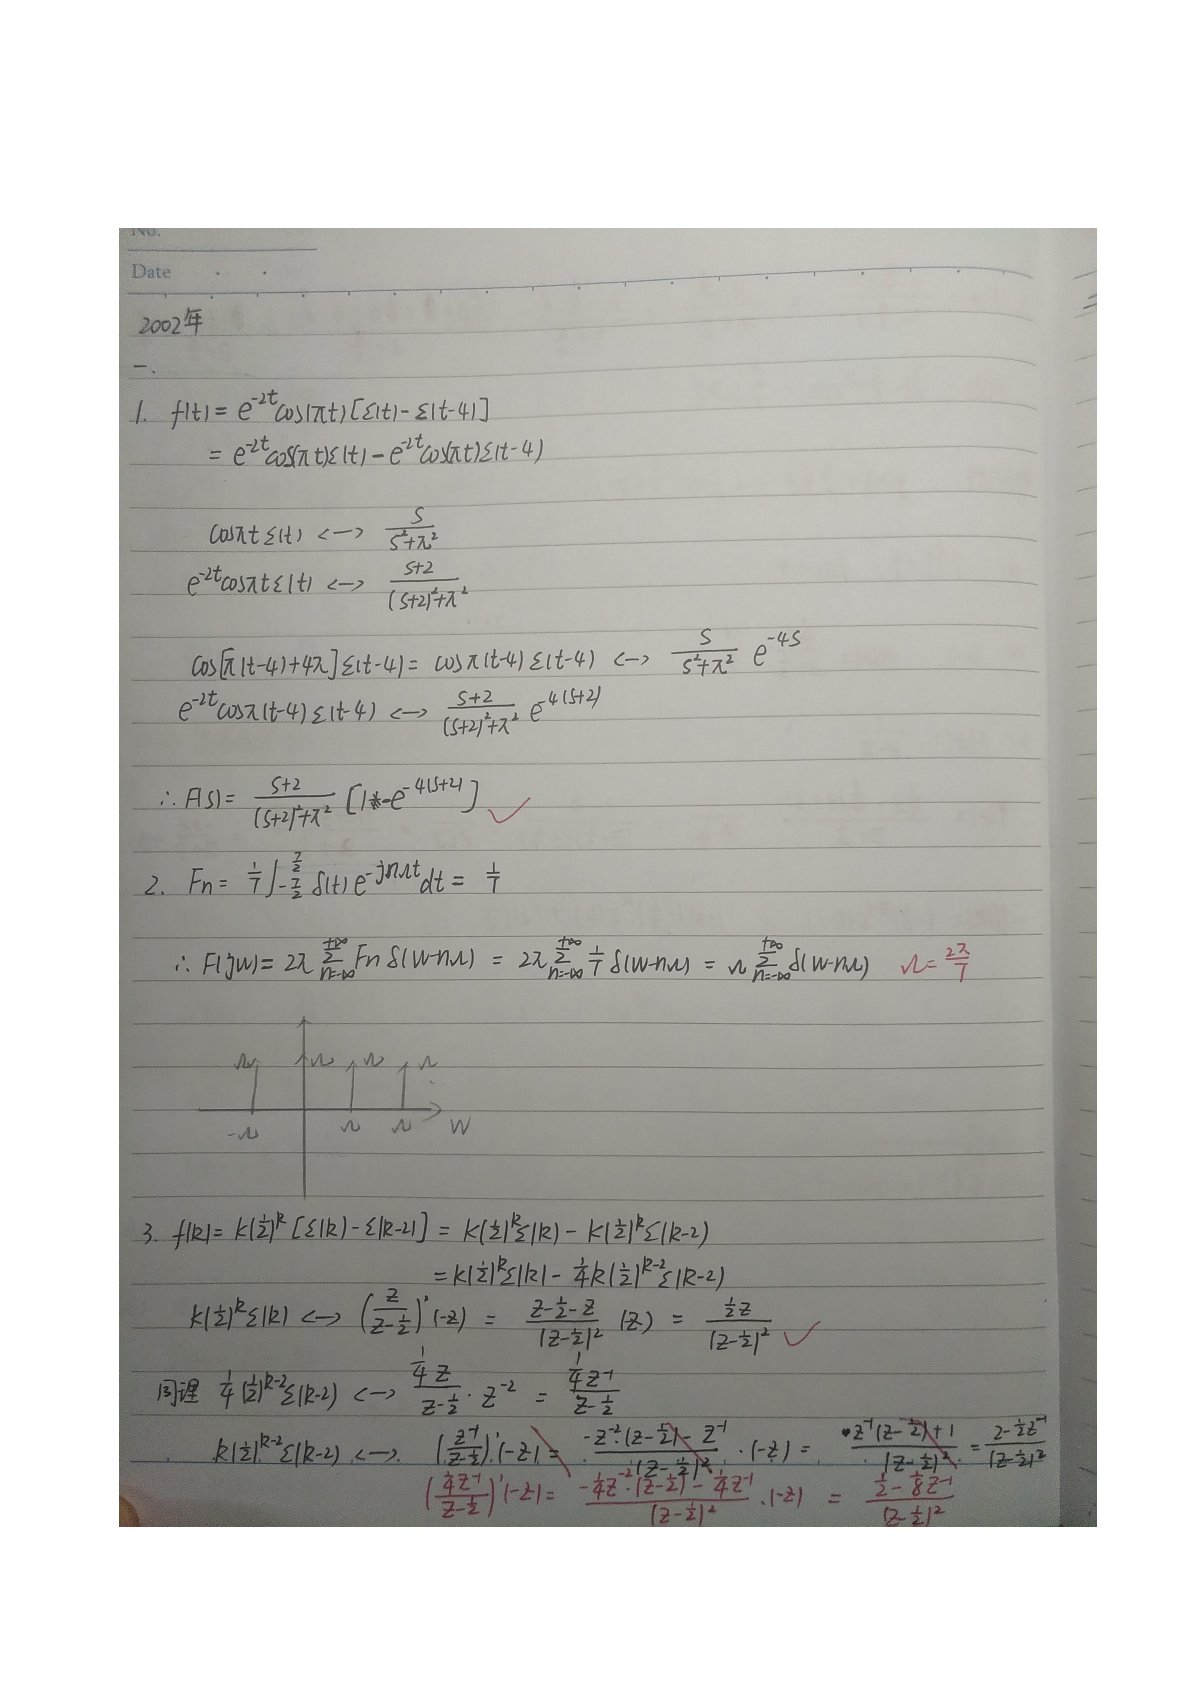 No.
Date
2002年
一.
1. f(t) = e^{-2t}cos(πt)[ε(t)-ε(t-4)]
= e^{-2t}cos(πt)ε(t) - e^{-2t}cos(πt)ε(t-4)
cosπt ε(t) <—> \frac{s}{s²+π²}
e^{-2t}cosπt ε(t) <—> \frac{s+2}{(s+2)²+π²}
cos[π(t-4)+4π]ε(t-4) = cosπ(t-4)ε(t-4) <—> \frac{s}{s²+π²} e^{-4s}
e^{-2t}cosπ(t-4)ε(t-4) <—> \frac{s+2}{(s+2)²+π²} e^{-4(s+2)}
∴ F(s) = \frac{s+2}{(s+2)²+π²} [1-e^{-4(s+2)}] ✓
2. Fn = \frac{1}{T} ∫_{-\frac{T}{2}}^{\frac{T}{2}} δ(t) e^{-jnΩt} dt = \frac{1}{T}
∴ F(jw) = 2π \sum_{n=-∞}^{+∞} Fn δ(w-nΩ) = 2π \sum_{n=-∞}^{+∞} \frac{1}{T} δ(w-nΩ) = Ω \sum_{n=-∞}^{+∞} δ(w-nΩ) Ω = \frac{2π}{T}
Ω Ω Ω Ω
-Ω Ω Ω w
3. f(k) = k(\frac{1}{2})^k [ε(k)-ε(k-2)] = k(\frac{1}{2})^k ε(k) - k(\frac{1}{2})^k ε(k-2)
= k(\frac{1}{2})^k ε(k) - \frac{1}{4}k(\frac{1}{2})^{k-2} ε(k-2)
k(\frac{1}{2})^k ε(k) <—> (\frac{z}{z-\frac{1}{2}})'(-z) = \frac{z-\frac{1}{2}-z}{(z-\frac{1}{2})²} (-z) = \frac{\frac{1}{2}z}{(z-\frac{1}{2})²} ✓
同理 \frac{1}{4}(\frac{1}{2})^{k-2} ε(k-2) <—> \frac{\frac{1}{4}z}{z-\frac{1}{2}} · z^{-2} = \frac{\frac{1}{4}z^{-1}}{z-\frac{1}{2}}
k(\frac{1}{2})^{k-2} ε(k-2) <—> (\frac{z^{-1}}{z-\frac{1}{2}})'(-z) = \frac{-z^{-2}·(z-\frac{1}{2})-z^{-1}}{(z-\frac{1}{2})²} · (-z) = \frac{z^{-1}(z-\frac{1}{2})+1}{(z-\frac{1}{2})²} = \frac{2-\frac{1}{2}z^{-1}}{(z-\frac{1}{2})²}
(\frac{\frac{1}{4}z^{-1}}{z-\frac{1}{2}})'(-z) = \frac{-\frac{1}{4}z^{-2}·(z-\frac{1}{2})-\frac{1}{4}z^{-1}}{(z-\frac{1}{2})²} · (-z) = \frac{\frac{1}{2}-\frac{1}{8}z^{-1}}{(z-\frac{1}{2})²}